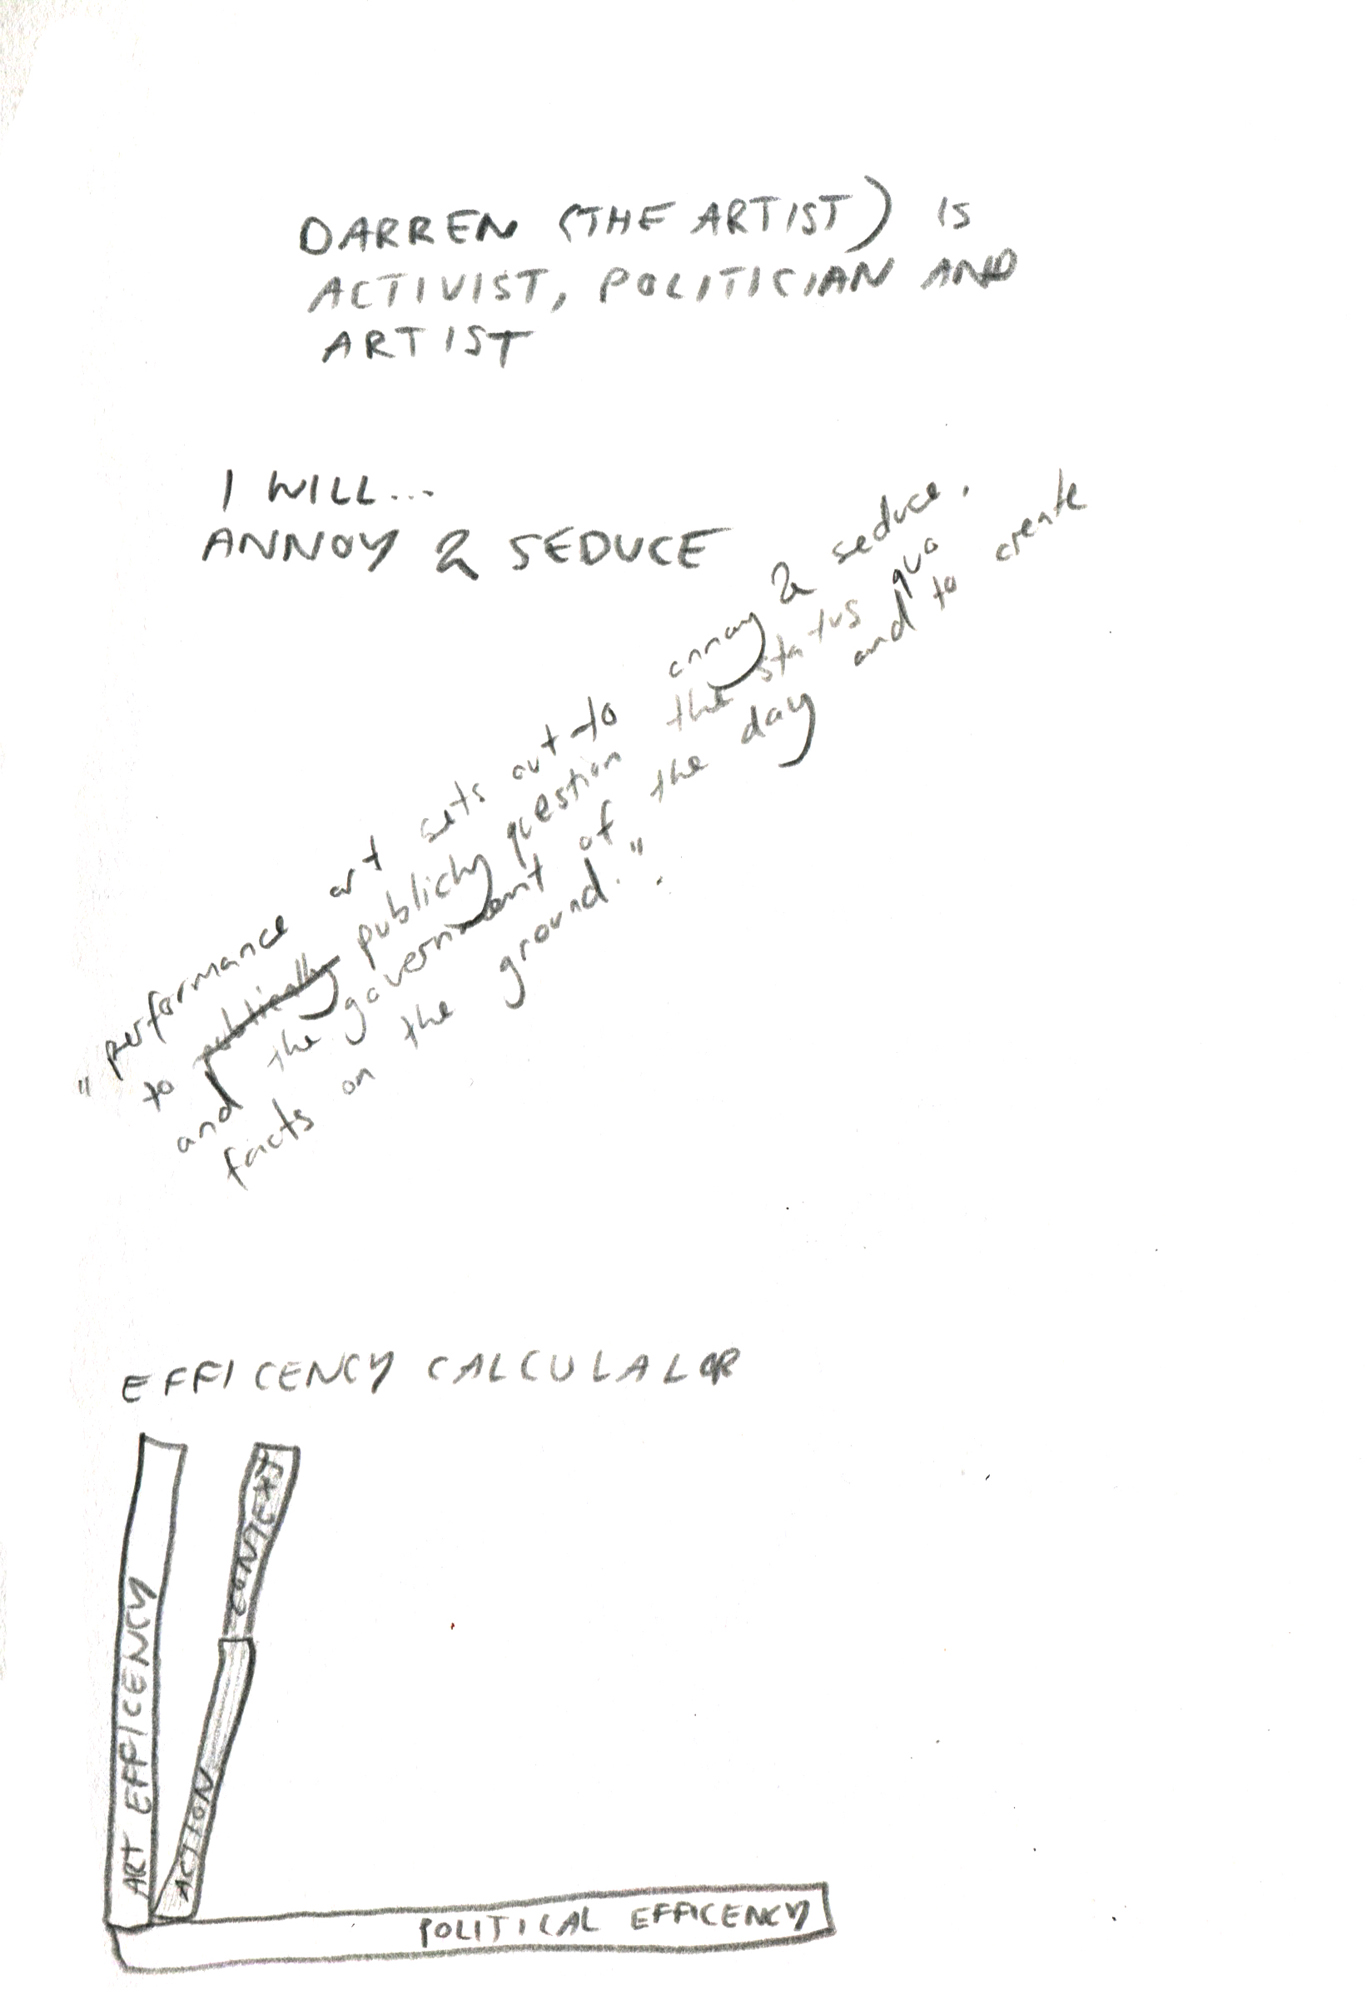 DARREN (THE ARTIST) IS
ACTIVIST, POLITICIAN AND
ARTIST
I WILL...
ANNOY & SEDUCE
"performance art sets out to annoy & seduce.
to publically publicly question the status quo
and the government of the day and to create
facts on the ground.".
EFFICENCY CALCULALOR
ART EFFICENCY
ACTION
CONTEXT
POLITICAL EFFICENCY